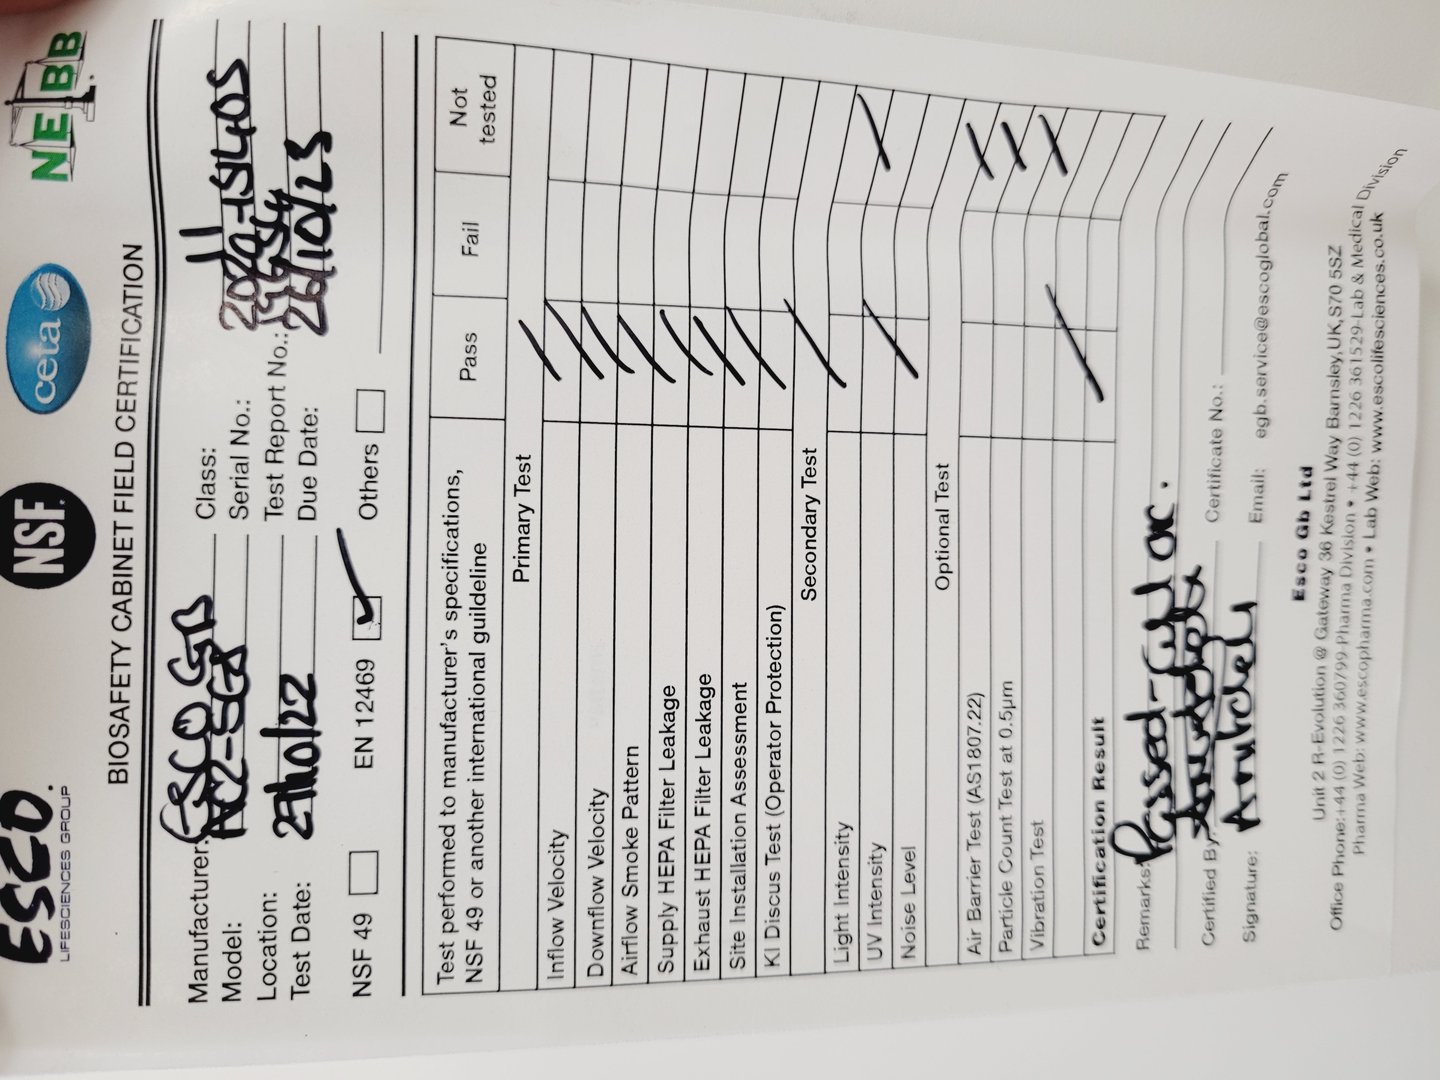 ESCO.
LIFESCIENCES GROUP
NSF.
ceta
NEBB
BIOSAFETY CABINET FIELD CERTIFICATION
Manufacturer: ESCO GB Class: II
Model: Serial No.:
Location: Test Report No.:
Test Date: 27/10/22 Due Date: 26/10/23
NSF 49 EN 12469 Others
Test performed to manufacturer's specifications, NSF 49 or another international guildeline Pass Fail Not tested
Primary Test
Inflow Velocity
Downflow Velocity
Airflow Smoke Pattern
Supply HEPA Filter Leakage
Exhaust HEPA Filter Leakage
Site Installation Assessment
KI Discus Test (Operator Protection)
Secondary Test
Light Intensity
UV Intensity
Noise Level
Optional Test
Air Barrier Test (AS1807.22)
Particle Count Test at 0.5µm
Vibration Test
Certification Result
Remarks: Passed
Certified By: Certificate No.:
Signature: Email: egb.service@escoglobal.com
Esco Gb Ltd
Unit 2 R-Evolution @ Gateway 36 Kestrel Way Barnsley,UK,S70 5SZ
Office Phone:+44 (0) 1226 360799-Pharma Division • +44 (0) 1226 361529-Lab & Medical Division
Pharma Web: www.escopharma.com • Lab Web: www.escolifesciences.co.uk